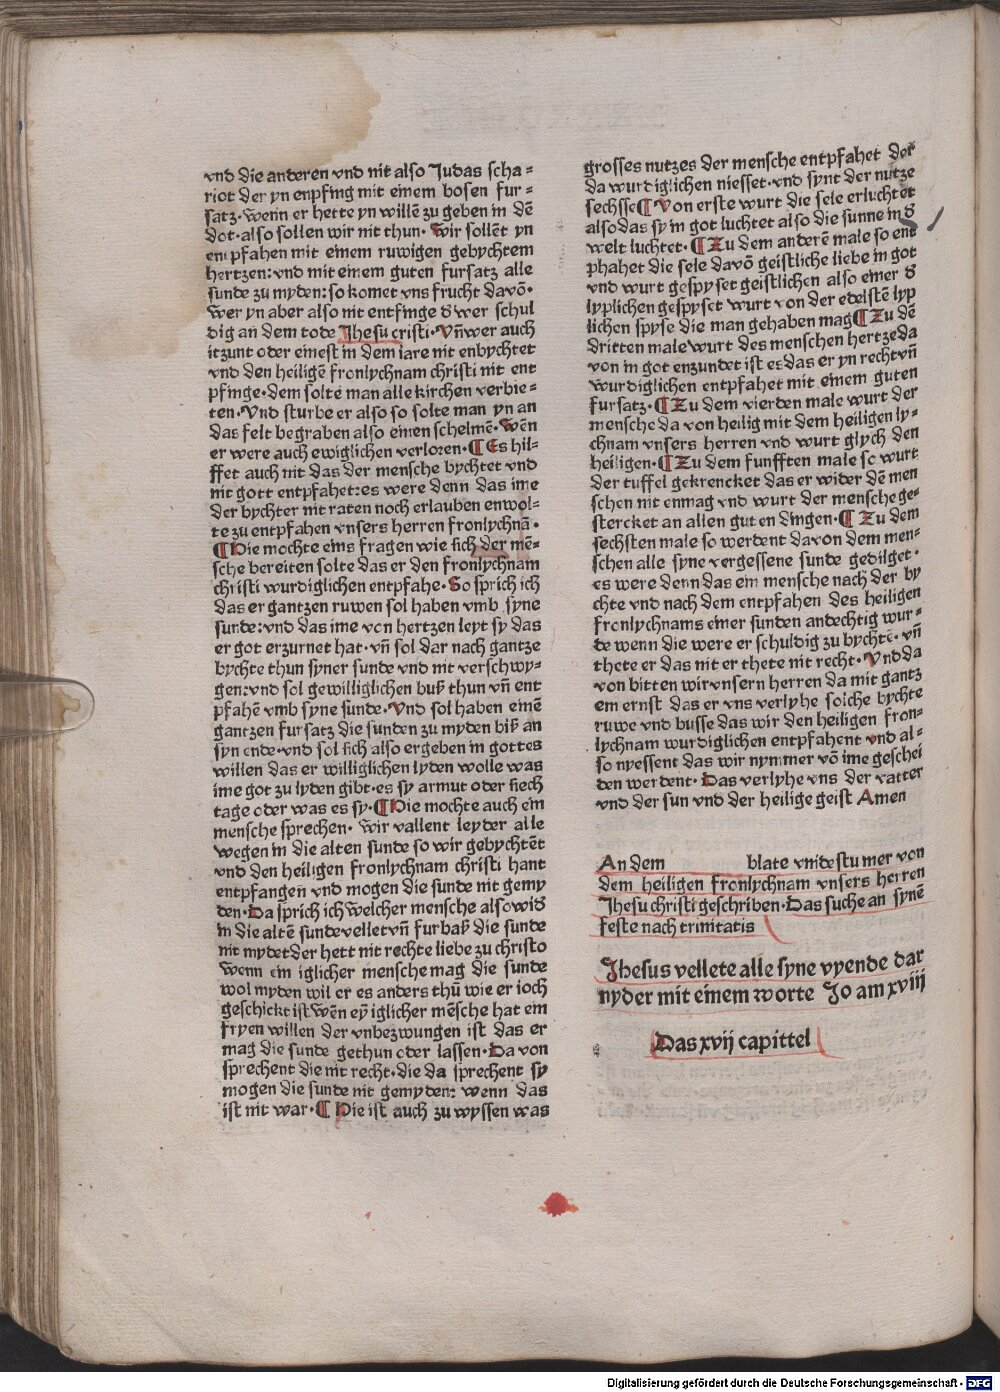 vnd die anderen vnd nit also Judas scha⸗
riot der yn enpfing mit einem bosen fur⸗
satz. wenn er hette yn willē zu geben in dē
dot. also sollen wir nit thun. Wir sollēt yn
entpfahen mit einem ruwigen gebychtem
hertzen: vnd mit einem guten fursatz alle
sunde zu myden: so komet vns frucht davō.
wer yn aber also nit entfinge d̄ wer schul
dig an dem tode Jhesu cristi. Vn̄ wer auch
itzunt oder einest in dem iare nit enbychtet
vnd den heiligē fronlychnam christi nit ent
pfinge. dem solte man alle kirchen verbie⸗
ten. Vnd sturbe er also so solte man yn an
das felt begraben also einen schelmē. Wēn
er were auch ewiglichen verloren. ¶ Es hil⸗
ffet auch nit das der mensche bychtet vnd
nit gott entpfahet: es were denn das ime
der bychter nit raten noch erlauben enwol⸗
te zu entpfahen vnsers herren fronlychnā.
¶ Hie mochte eins fragen wie sich der mē⸗
sche bereiten solte das er den fronlychnam
christi wurdiglichen entpfahe. So sprich ich
das er gantzen ruwen sol haben vmb syne
sunde: vnd das ime von hertzen leyt sy das
er got erzurnet hat. vn̄ sol dar nach gantze
bychte thun syner sunde vnd nit verschwy⸗
gen: vnd sol gewilliglichen buß thun vn̄ ent
pfahē vmb syne sunde. Vnd sol haben einē
gantzen fursatz die sunden zu myden biß an
syn ende. vnd sol sich also ergeben in gottes
willen das er williglichen lyden wolle was
ime got zu lyden gibt. es sy armut oder siech
tage oder was es sy. ¶ Hie mochte auch ein
mensche sprechen. wir vallent leyder alle
wegen in die alten sunde so wir gebychtēt
vnd den heiligen fronlychnam christi hant
entpfangen vnd mogen die sunde nit gemy
den. Da sprich ich welcher mensche also wid̄
in die altē sunde vellet vn̄ furbaß die sunde
nit mydet der hett nit rechte liebe zu christo
wenn ein iglicher mensche mag die sunde
wol myden wil er es anders thū wie er ioch
geschickt ist wēn eȳ iglicher mēsche hat ein
fryen willen der vnbezwungen ist das er
mag die sunde gethun oder lassen. Da von
sprechent die nit recht. die da sprechent sy
mogen die sunde nit gemyden: wenn das
ist nit war. ¶ Hie ist auch zu wyssen was
grosses nutzes der mensche entpfahet der
da wurdiglichen niesset. vnd synt der nutze
sechsse ¶ Von erste wurt die sele erluchtet
also das sy in got luchtet also die sunne in d̄
welt luchtet. ¶ Zu dem anderē male so ent
phahet die sele davō geistliche liebe in got
vnd wurt gespyset geistlichen also einer d̄
lyplichen gespyset wurt von der edelstē lyp
lichen spyse die man gehaben mag ¶ Zu dē
dritten male wurt des menschen hertze da
von in got enzundet ist es das er yn recht vn̄
wurdiglichen entpfahet mit einem guten
fursatz. ¶ Zu dem vierden male wurt der
mensche da von heilig mit dem heiligen ly⸗
chnam vnsers herren vnd wurt glych den
heiligen. ¶ Zu dem funfften male so wurt
der tuffel gekrencket das er wider dē men
schen nit enmag vnd wurt der mensche ge⸗
stercket an allen guten dingen. ¶ Zu dem
sechsten male so werdent davon dem men⸗
schen alle syne vergessene sunde gedilget.
es were denn das ein mensche nach der by
chte vnd nach dem entpfahen des heiligen
fronlychnams einer sunden andechtig wur⸗
de wenn die were er schuldig zu bychtē. vn̄
thete er das nit er thete nit recht. Vnd da
von bitten wir vnsern herren da mit gantz
em ernst das er vns verlyhe soiche bychte
ruwe vnd busse das wir den heiligen fron⸗
lychnam wurdiglichen entpfahent vnd al⸗
so nyessent das wir nymmer vō ime geschei
den werdent. Das verlyhe vns der vatter
vnd der sun vnd der heilige geist Amen
An dem blate vnidestu mer von
dem heiligen fronlychnam vnsers herren
Jhesu christi geschriben. Das suche an synē
feste nach trinitatis
Jhesus vellete alle syne vyende dar
nyder mit einem worte Jo am xviij
Das xvij capittel
Digitalisierung gefördert durch die Deutsche Forschungsgemeinschaft - DFG